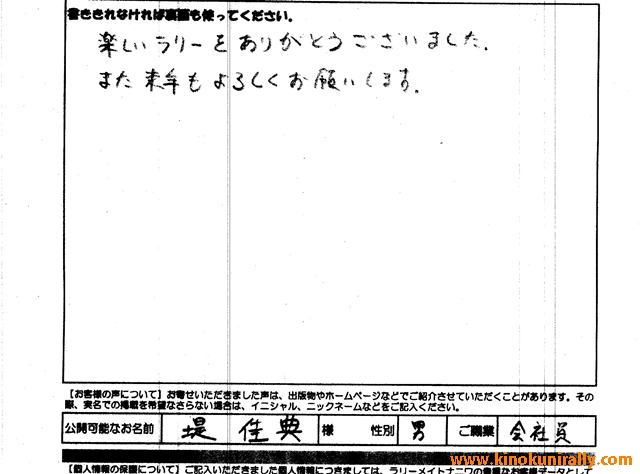 書ききれなければ裏面も使ってください。
楽しいラリーをありがとうございました。
また来年もよろしくお願いします。
【お客様の声について】お寄せいただきました声は、出版物やホームページなどでご紹介させていただくことがあります。その
際、実名での掲載を希望なさらない場合は、イニシャル、ニックネームなどをご記入ください。
公開可能なお名前 堤 佳典 様 性別 男 ご職業 会社員
www.kinokunirally.com
【個人情報の保護について】ご記入いただきました個人情報につきましては、ラリーメイトナニワの貴重なお客様データとして